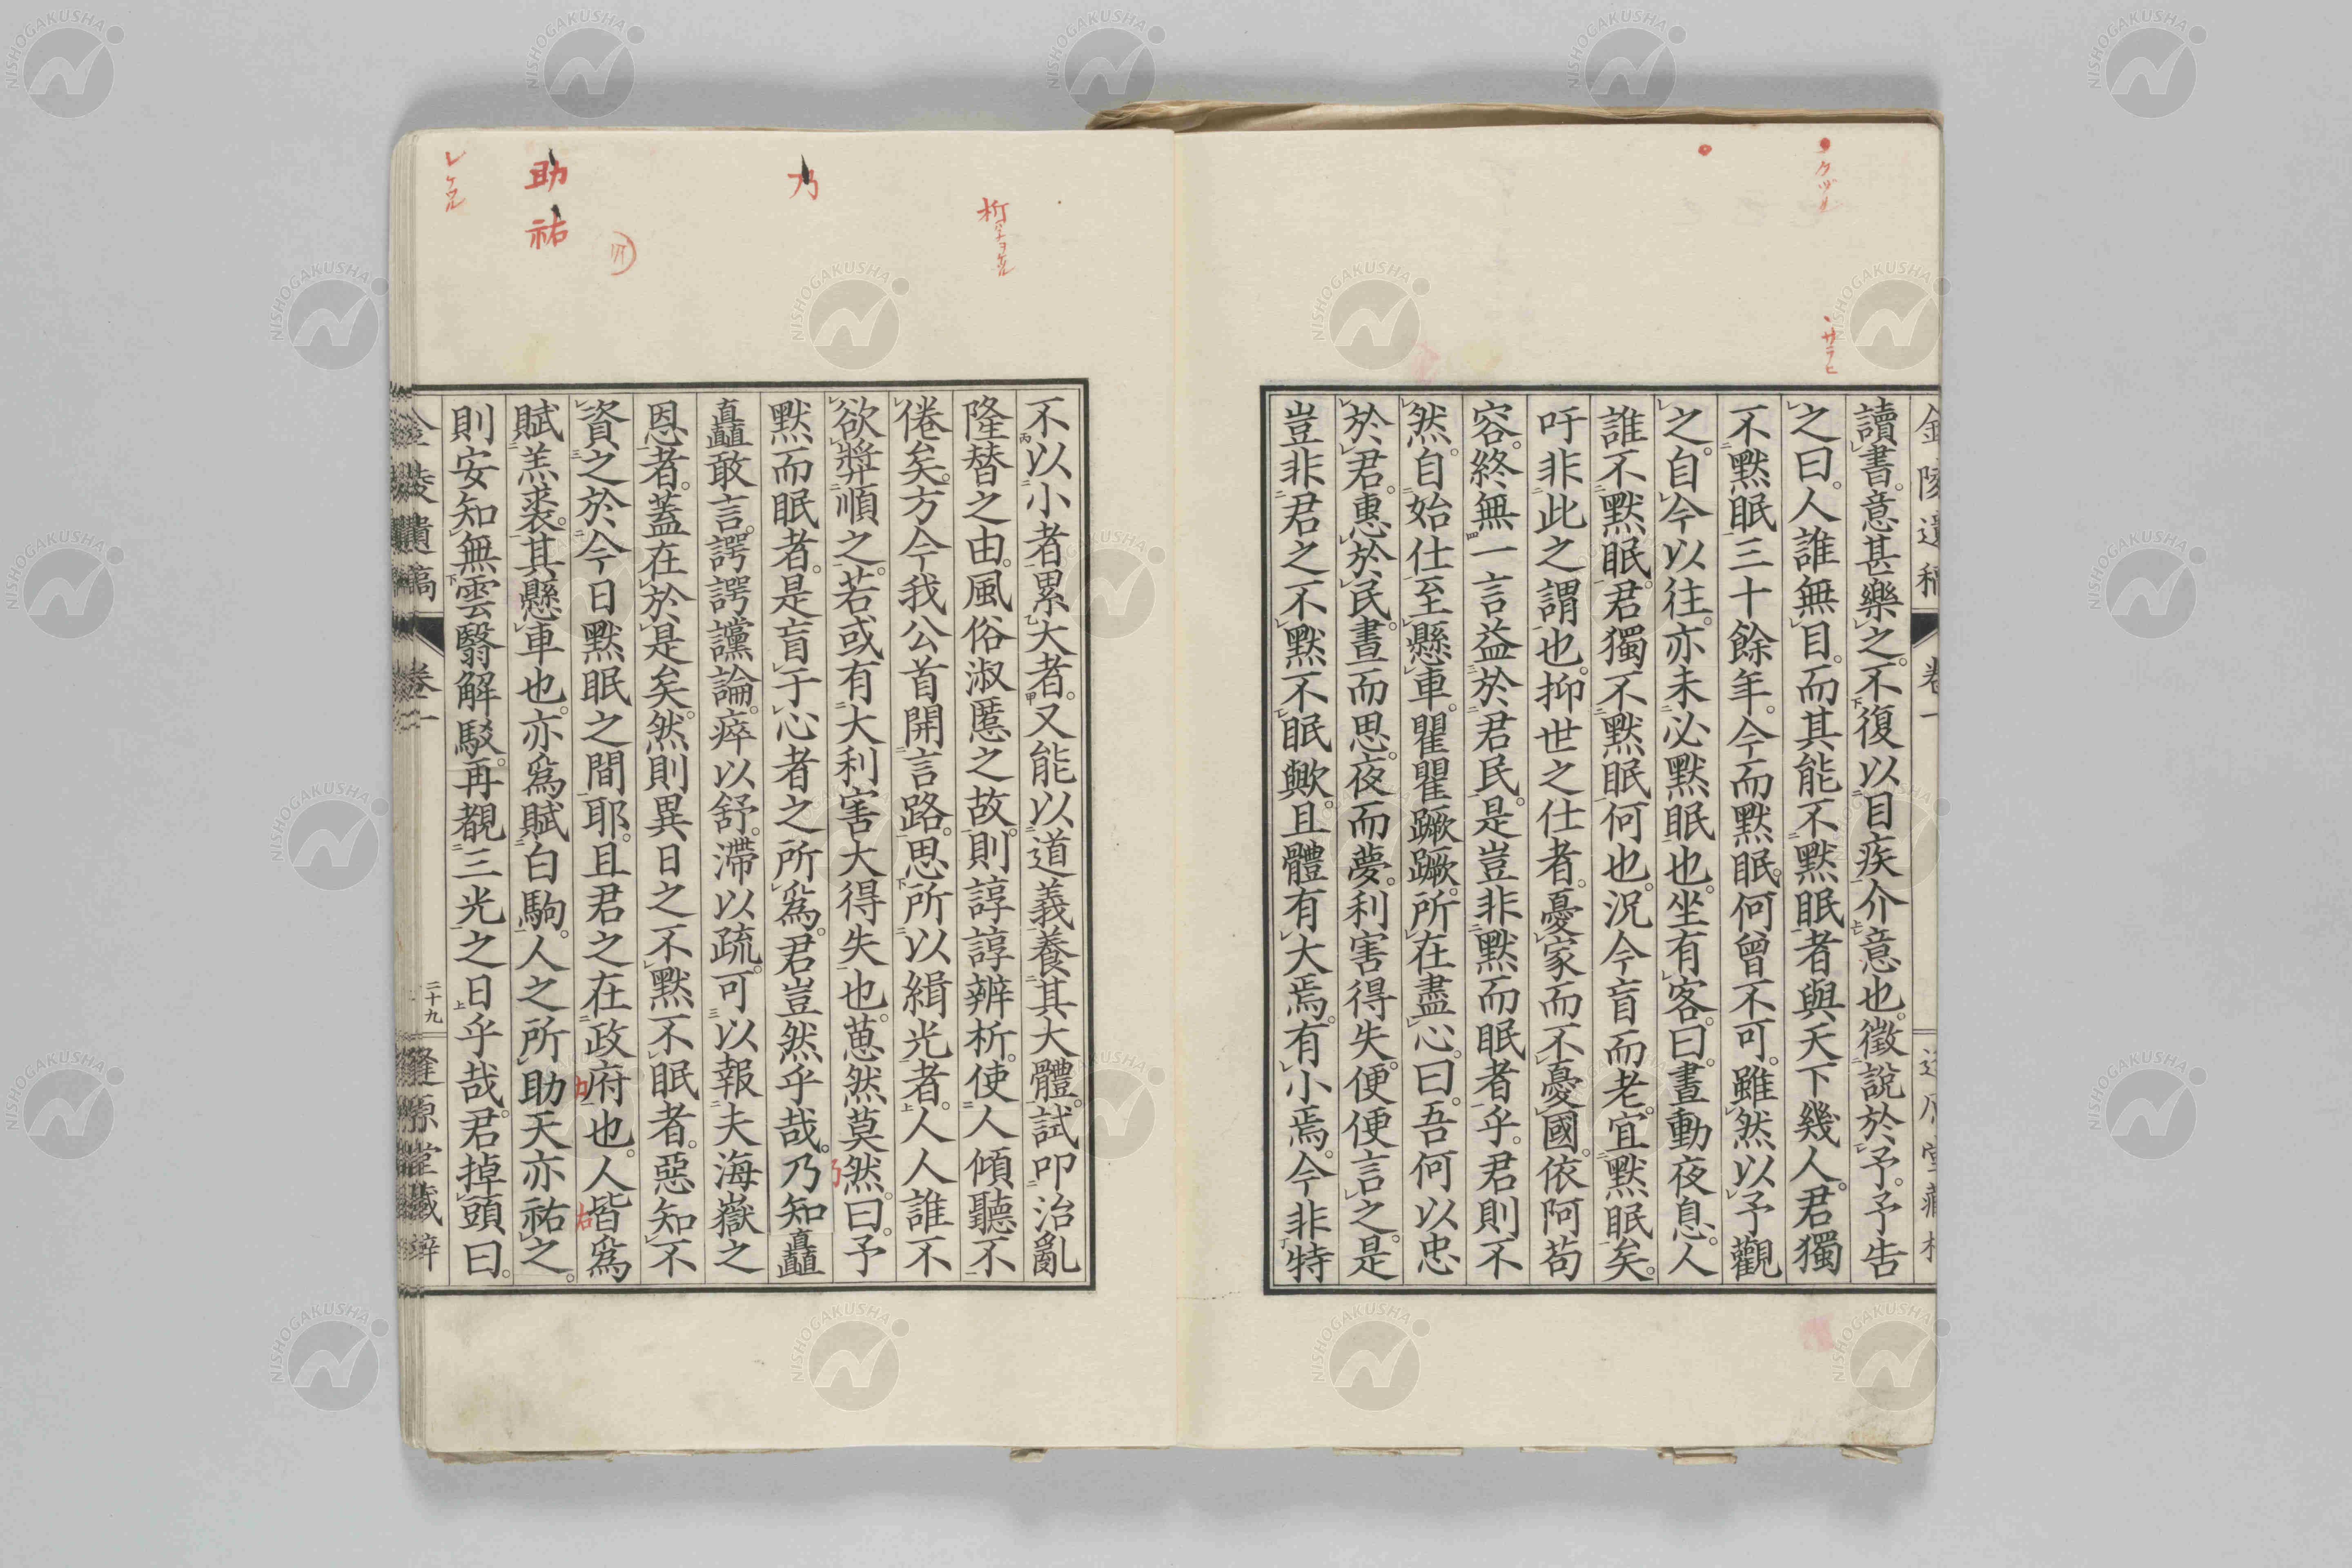 讀書。意甚樂之。不復以目疾介意也。徵說於予。予告
之曰。人誰無目。而其能不默眠者與天下幾人。君獨
不默眠三十餘年。今而默眠。何曾不可。雖然以予觀
之。自今以往。亦未必默眠也。坐有客。曰。晝動夜息。人
誰不默眠。君獨不默眠何也。況今盲而老。宜默眠矣。
吁非此之謂也。抑世之仕者。憂家而不憂國。依阿苟
容。終無一言益於君民。是豈非默而眠者乎。君則不
然。自始仕至懸車。瞿瞿蹶蹶。所在盡心。曰。吾何以忠
於君。惠於民。晝而思。夜而夢。利害得失。便便言之。是
豈非君之不默不眠歟。且體有大焉。有小焉。今非特
不以小者累大者。又能以道義養其大體。試叩治亂
隆替之由。風俗淑慝之故。則諄諄辨析。使人傾聽不
倦矣。方今我公首開言路。思所以緝光者。人人誰不
欲將順之。若或有大利害大得失也。葸然莫然。曰。予
默而眠者。是盲于心者之所爲。君豈然乎哉。乃知矗
矗敢言。諤諤讜論。瘁以舒。滯以疏。可以報夫海嶽之
恩者。蓋在於是矣。然則異日之不默不眠者。惡知不
資之於今日默眠之間耶。且君之在政府也。人皆爲
賦羔裘。其懸車也。亦爲賦白駒。人之所助天亦祐之。
則安知無雲翳解駁。再覩三光之日乎哉。君掉頭曰。
卷一
二十九
乃
助
祐